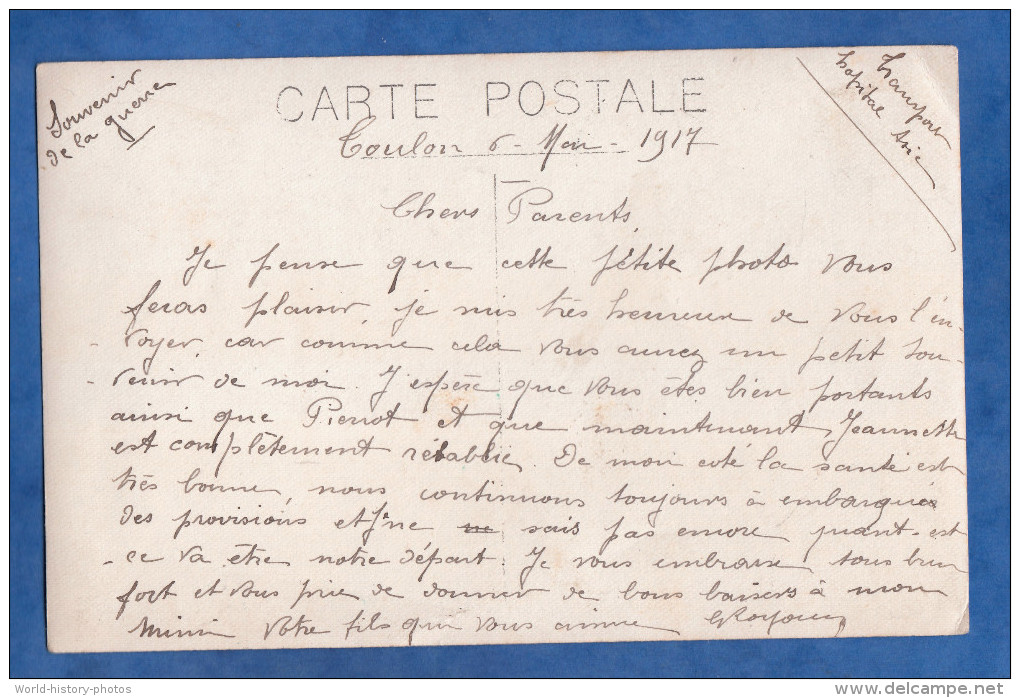 Souvenir
de la guerre
CARTE POSTALE
transport
hopital Asie
Toulon 6 - Mai - 1917
Chers Parents,
Je pense que cette pétite photo vous
feras plaisir, je suis très heureux de vous l'en-
voyer, car comme cela vous aurez un petit sou-
venir de moi. J'espère que vous êtes bien portants
ainsi que Pierrot et que maintenant Jeannette
est complètement rétablie. De mon coté la santé est
très bonne, nous continuons toujours à embarqués
des provisions et je ne sais pas encore quant-est
ce va être notre départ. Je vous embrasse tous bien
fort et vous prie de donner de bons baisers à mon
Mimi Votre fils qui vous aime
World-history-photos
delcampe.net